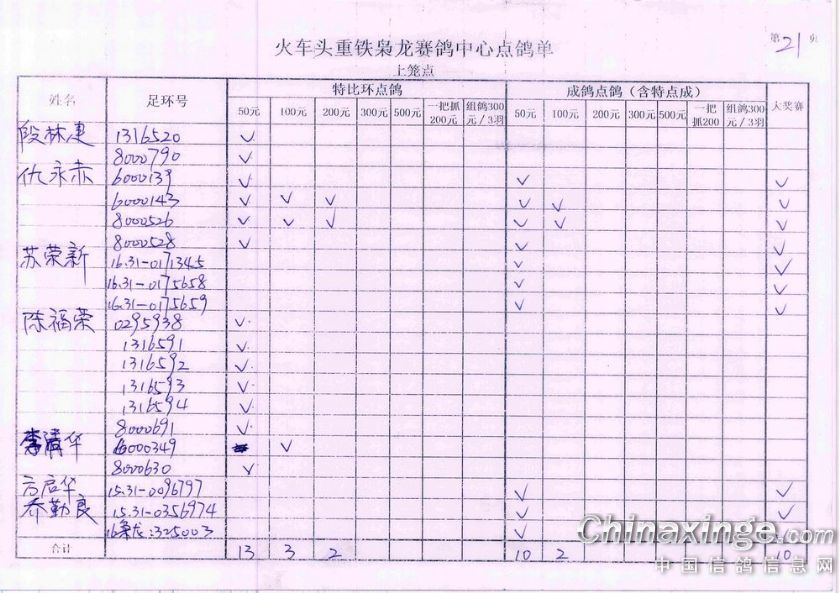 第21页
火车头重铁枭龙赛鸽中心点鸽单
上笼点
姓名 足环号 特比环点鸽 成鸽点鸽（含特点成） 大奖赛
50元 100元 200元 300元 500元 一把抓200元 组鸽300元/3羽 50元 100元 200元 300元 500元 一把抓200 组鸽300元/3羽
段林 1316520 ✓
8000790 ✓
仇永赤 6000139 ✓ ✓ ✓
6000143 ✓ ✓ ✓ ✓ ✓ ✓
8000526 ✓ ✓ ✓ ✓ ✓ ✓
8000528 ✓ ✓ ✓
苏荣新 16.31-0171345 ✓ ✓
16.31-0175658 ✓ ✓
16.31-0175659 ✓ ✓
陈福荣 0295938 ✓
1316591 ✓
1316592 ✓
1316593 ✓
1316594 ✓
8000691 ✓
李清华 6000349 ✓
8000630 ✓
方启华 15.31-0096797 ✓ ✓
乔勤良 15.31-0356974 ✓ ✓
16枭龙:325003 ✓
合计 13 3 2 10 2 10
Chinaxinge.com
中国信鸽信息网